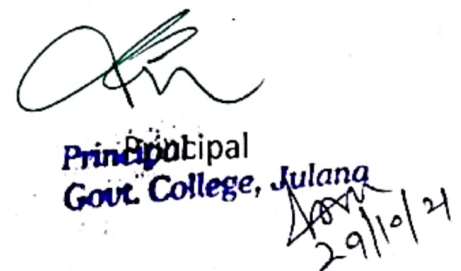 Principal
Principal
Govt. College, Julana
29/10/21